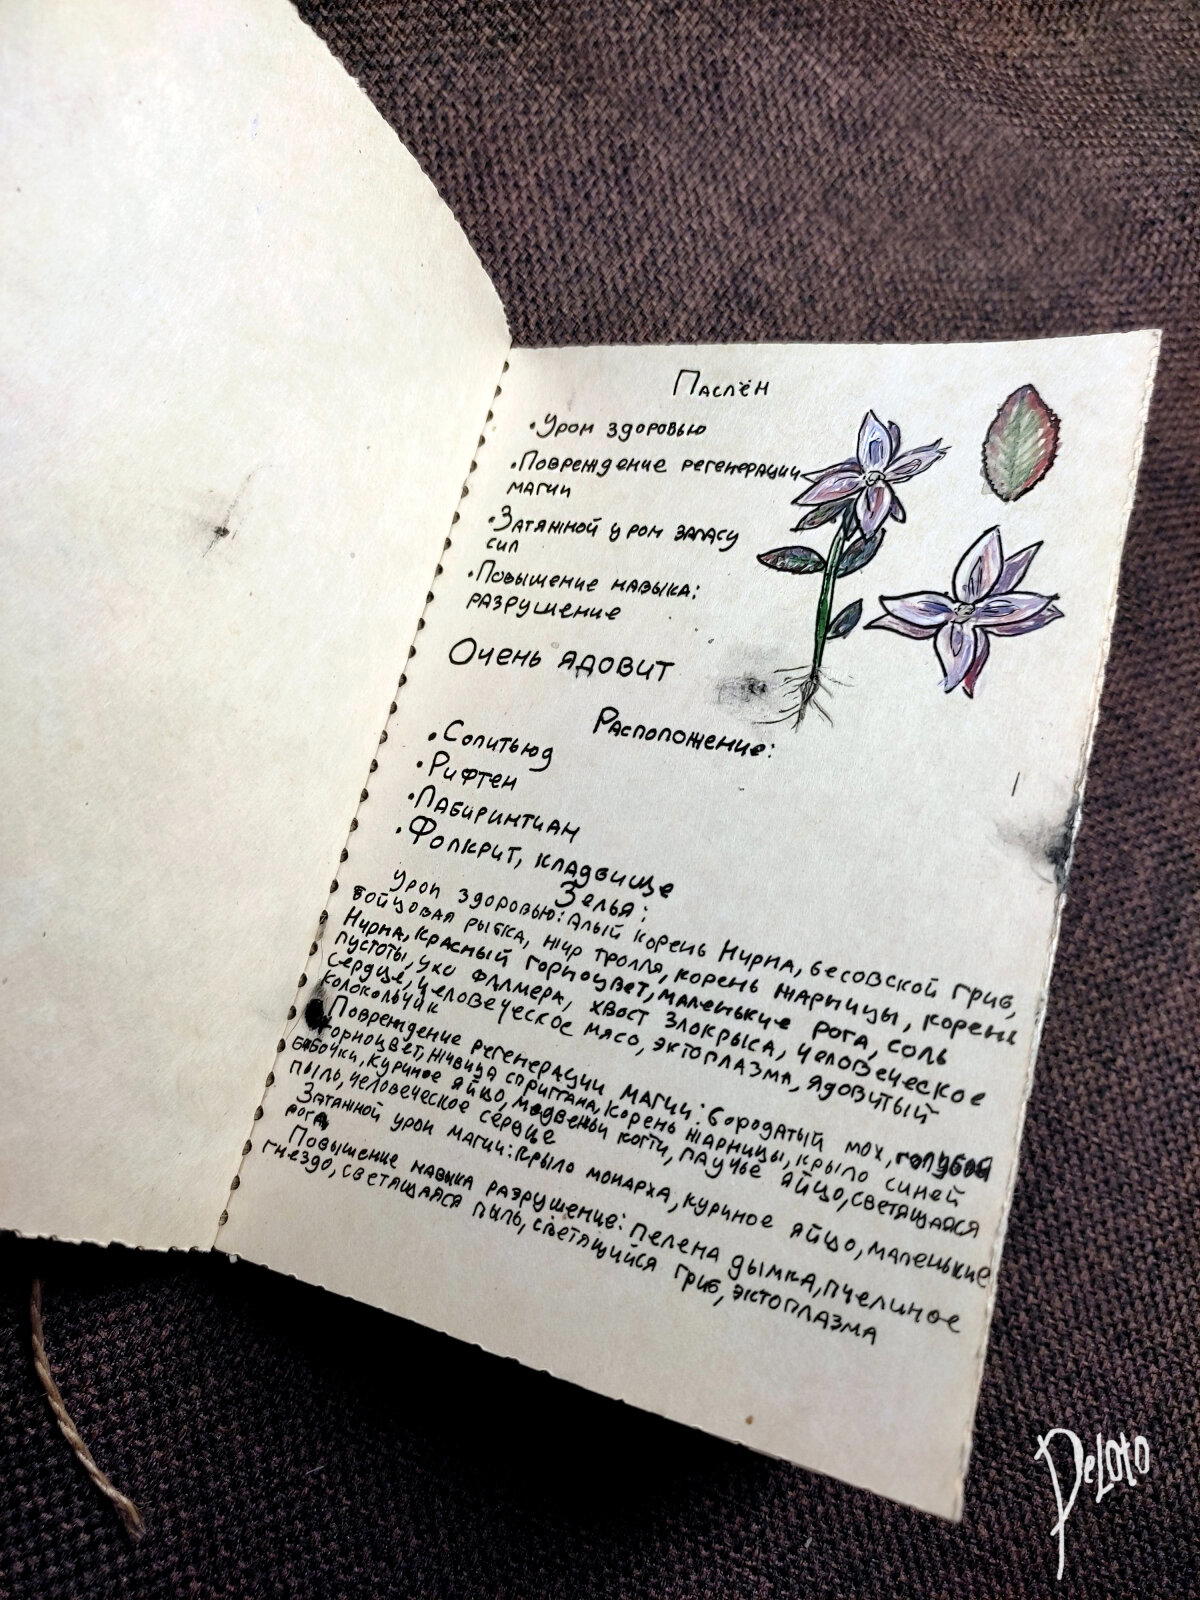 Паслён
• Урон здоровью
• Повреждение регенерации
магии
• Затяжной урон запасу
сил
• Повышение навыка:
разрушение
Очень ядовит
Расположение:
• Солитьюд
• Рифтен
• Лабиринтиан
• Фолкрит, кладвище
Зелья:
Урон здоровью: Алый корень Нирна, бесовской гриб,
бойцовая рыбка, жир тролля, корень жарницы, корень
Нирна, красный горноцвет, маленькие рога, соль
пустоты, ухо фалмера, хвост злокрыса, человеческое
сердце, человеческое мясо, эктоплазма, ядовитый
колокольчик
Повреждение регенерации магии: бородатый мох, голубой
горноцвет, живица спригтана, корень жарницы, крыло синей
бабочки, куриное яйцо, медвежьи когти, паучье яйцо, светящаяся
пыль, человеческое сердце
Затяжной урон магии: крыло монарха, куриное яйцо, маленькие
рога
Повышение навыка разрушение: пепена дымка, пчелиное
гнездо, светящаяся пыль, светящийся гриб, эктоплазма
DeLoto